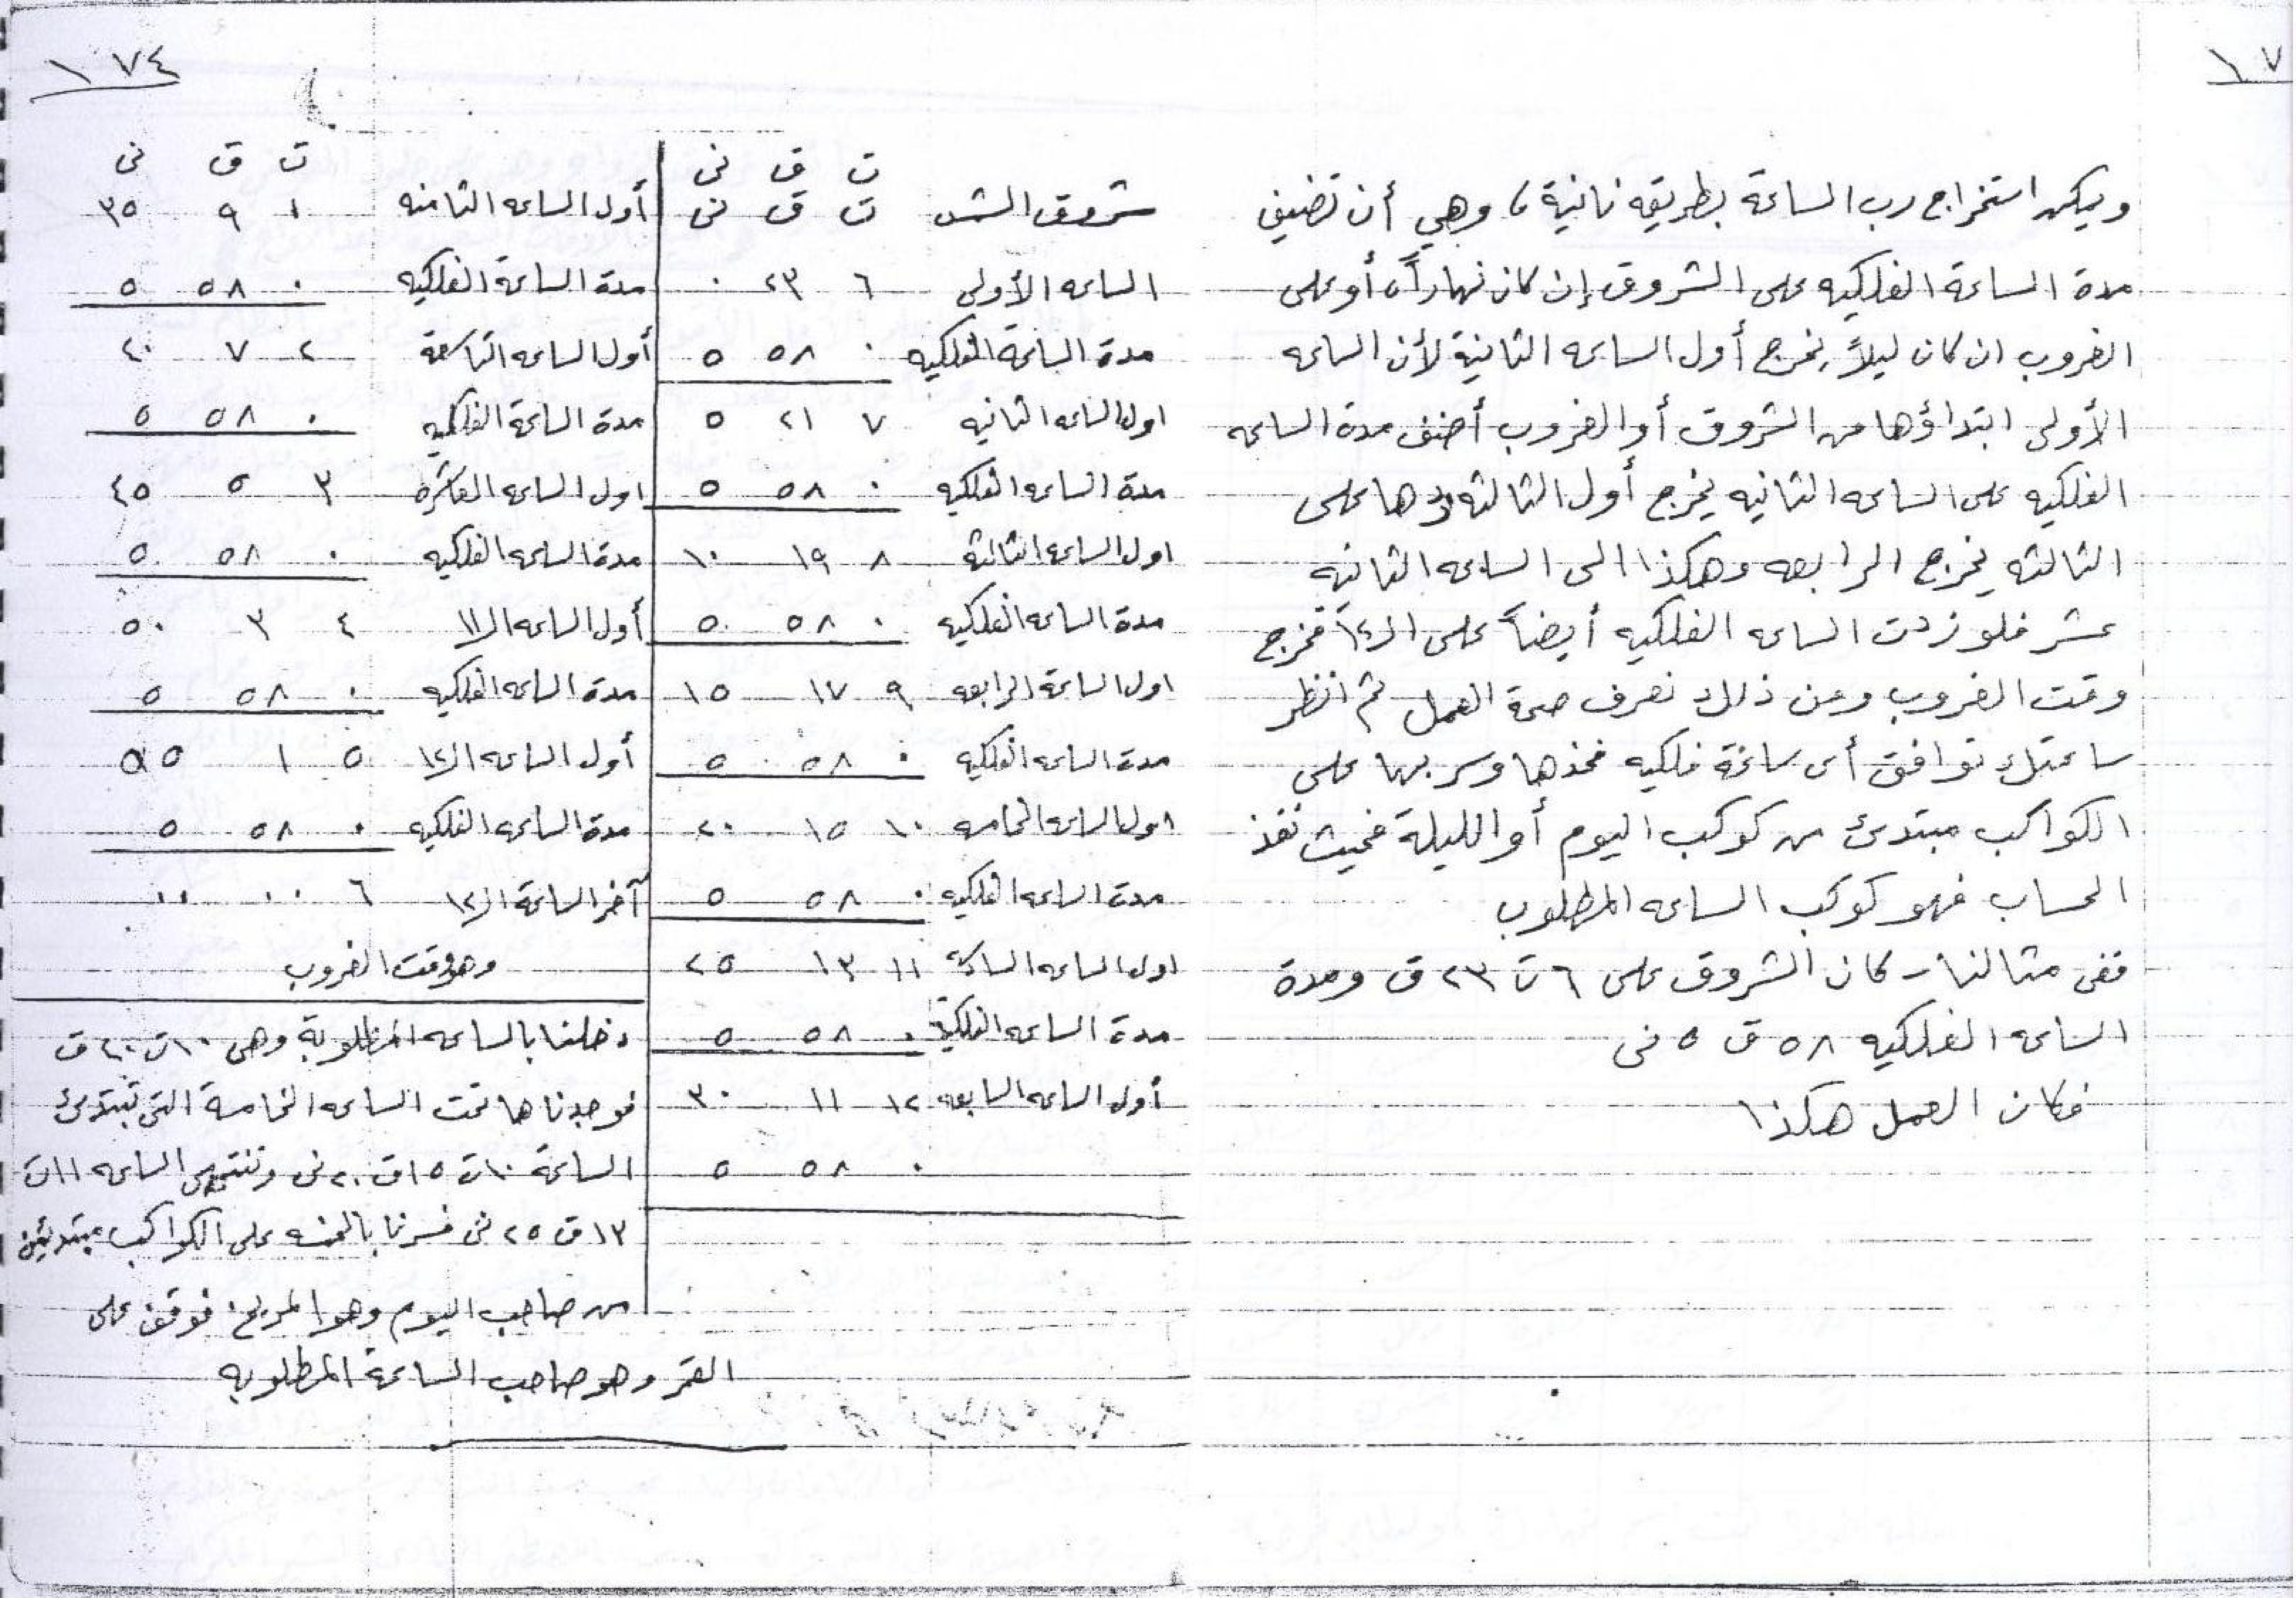 ١٧
ويمكن استخراج رب الساعة بطريقه ثانية، وهي أن تضيف
مدة الساعة الفلكيه على الشروق إن كان نهاراً، أو على
الغروب ان كان ليلاً، يخرج أول الساعه الثانية لأن الساعه
الأولى ابتداؤها من الشروق أو الغروب أضف مدة الساعه
الفلكيه على الساعه الثانيه يخرج أول الثالثه زدها على
الثالثه يخرج الرابعه وهكذا الى الساعه الثانيه
عشر فلو زدت الساعه الفلكيه أيضاً على الـ١٢ فخرج
وقت الغروب ومن ذلك نعرف صحة العمل ثم انظر
ساعتك توافق أى ساعة فلكيه فخذها وسر بها على
الكواكب مبتدئ من كوكب اليوم أو الليلة فحيث نفذ
الحساب فهو كوكب الساعه المطلوب
ففى مثالنا - كان الشروق على ٦ ت ٢٣ ق ومدة
الساعه الفلكيه ٥٨ ق ٥ نى
فكان العمل هكذا
١٧٤
ت ق نى
شروق الشمس ت ق نى
الساعه الأولى ٦ ٢٣ ٠
مدة الساعة الفلكيه ٠ ٥٨ ٥
اول الساعه الثانيه ٧ ٢١ ٥
مدة الساعه الفلكيه ٠ ٥٨ ٥
اول الساعه الثالثة ٨ ١٩ ١٠
مدة الساعه الفلكيه ٠ ٥٨ ٥
اول الساعة الرابعه ٩ ١٧ ١٥
مدة الساعه الفلكيه ٠ ٥٨ ٥
اول الساعه الخامسه ١٠ ١٥ ٢٠
مدة الساعه الفلكيه ٠ ٥٨ ٥
اول الساعه السادسة ١١ ١٣ ٢٥
مدة الساعه الفلكية ٠ ٥٨ ٥
أول الساعه السابعه ١٢ ١١ ٣٠
٠ ٥٨ ٥
ت ق نى
أول الساعه الثامنه ١ ٩ ٣٥
مدة الساعة الفلكيه ٠ ٥٨ ٥
أول الساعه التاسعة ٢ ٧ ٤٠
مدة الساعة الفلكيه ٠ ٥٨ ٥
اول الساعه العاشره ٣ ٥ ٤٥
مدة الساعه الفلكيه ٠ ٥٨ ٥
أول الساعه الـ١١ ٤ ٣ ٥٠
مدة الساعه الفلكيه ٠ ٥٨ ٥
أول الساعه الـ١٢ ٥ ١ ٥٥
مدة الساعه الفلكيه ٠ ٥٨ ٥
آخر الساعة الـ١٢ ٦ ٠٠ ٠٠
وهو وقت الغروب
دخلنا بالساعه المطلوبة وهى ١٠ ت ٤٠ ق
فوجدناها تحت الساعه الخامسة التى تبتدئ
الساعة ١٠ ت ١٥ ق ٢٠ نى وتنتهى الساعه ١١ ت
١٣ ق ٢٥ نى فسرنا بالخمسه على الكواكب مبتدئين
من صاحب اليوم وهو المريخ. فوقف على
القمر وهو صاحب الساعة المطلوبه